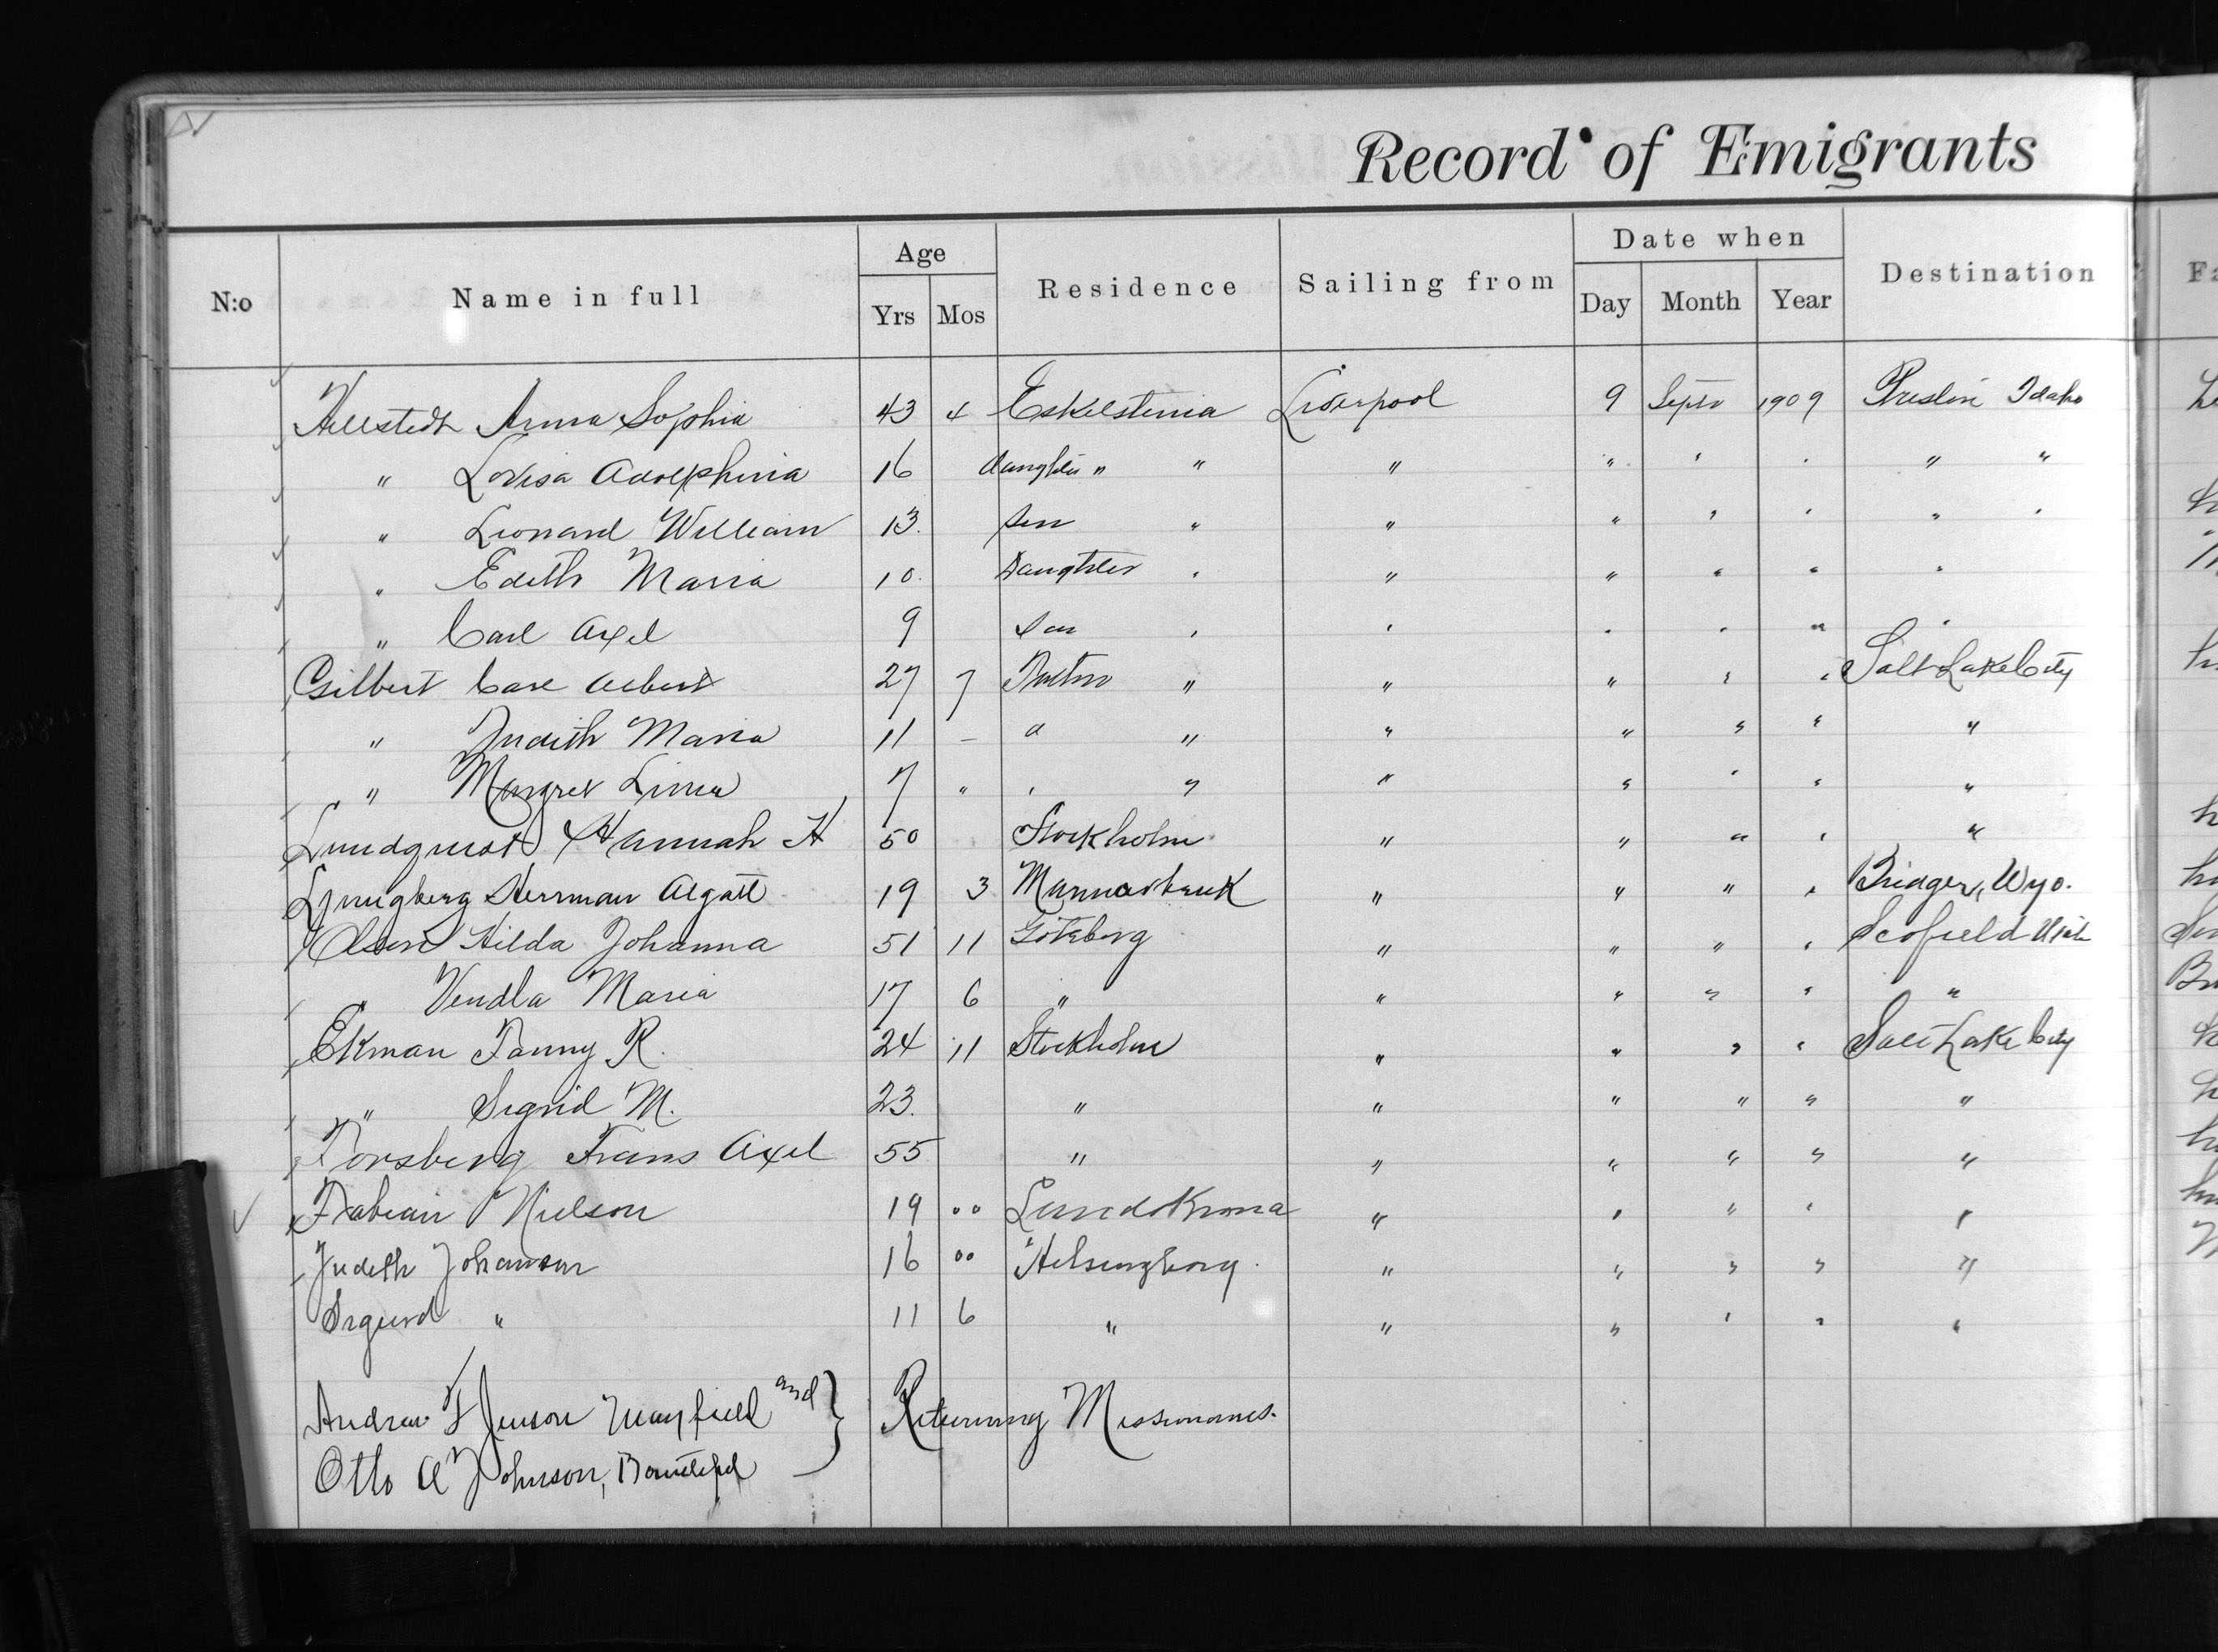 Record of Emigrants
N:o Name in full Age Yrs Mos Residence Sailing from Date when Day Month Year Destination Fa
Hellstedt Anna Sophia 43 4 Eskelstuna Liverpool 9 Septr 1909 Preston Idaho
" Lovisa Adolphina 16 daughter " " " " " " " "
" Leonard William 13. son " " " " " " "
" Edith Maria 10. Daughter " " " " " "
" Carl Axel 9 son " " " " " "
Gilbert Carl Albert 27 7 " " " " " Salt Lake City
" Judith Maria 11 – " " " " " " "
" Margret Linna 7 " " " " " " " "
Lundquist Hannah H 50 Stockholm " " " " "
Ljungberg Herrman Algatt 19 3 " " " " Bridger, Wyo.
Olsen Hilda Johanna 51 11 Göteborg " " " " Scofield Utah
" Vendla Maria 17 6 " " " " " "
Ekman Fanny R. 24 11 Stockholm " " " " Salt Lake City
" Sigrid M. 23. " " " " " "
Forsberg Frans Axel 55 " " " " " "
Fabian Nielson 19 " Lundskrona " " " " "
Judith Johanson 16 " Helsingborg. " " " " "
Sigurd " 11 6 " " " " " "
Andrew F Jenson Mayfield and } Returning Missionaries.
Otto A Johnson, Bountiful